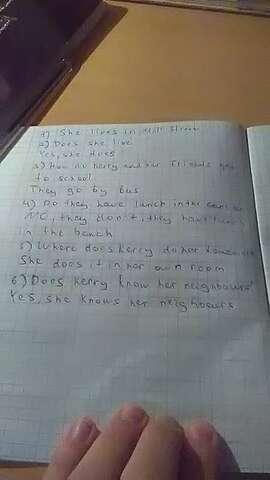 1) She lives in Mill Street
2) Does she live
Yes, she does
3) How do Kerry and her Friends go
to school
They go by bus
4) Do they have lunch in the
they don't, they have
in the
5) Where does kerry do her
She does it in her own room
6) Does kerry know her neighbours?
Yes, she knows her neighbours